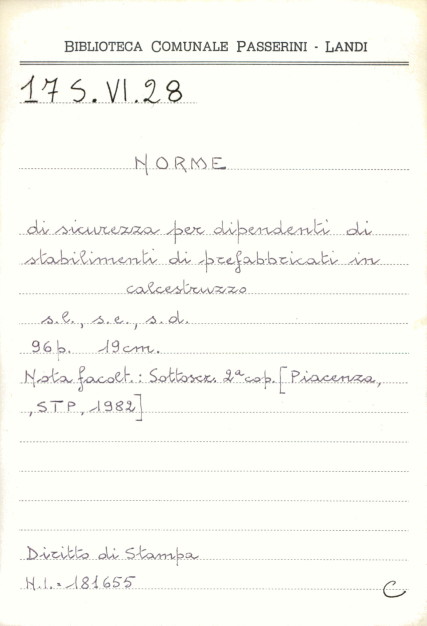 BIBLIOTECA COMUNALE PASSERINI - LANDI
17 S.VI.28
NORME
di sicurezza per dipendenti di
stabilimenti di prefabbricati in
calcestruzzo
s.l., s.e., s.d.
96p. 19cm.
Nota facolt.: Sottoscr. 2ª cop. [Piacenza,
, STP, 1982]
Diritto di Stampa
N.I. = 181655
C